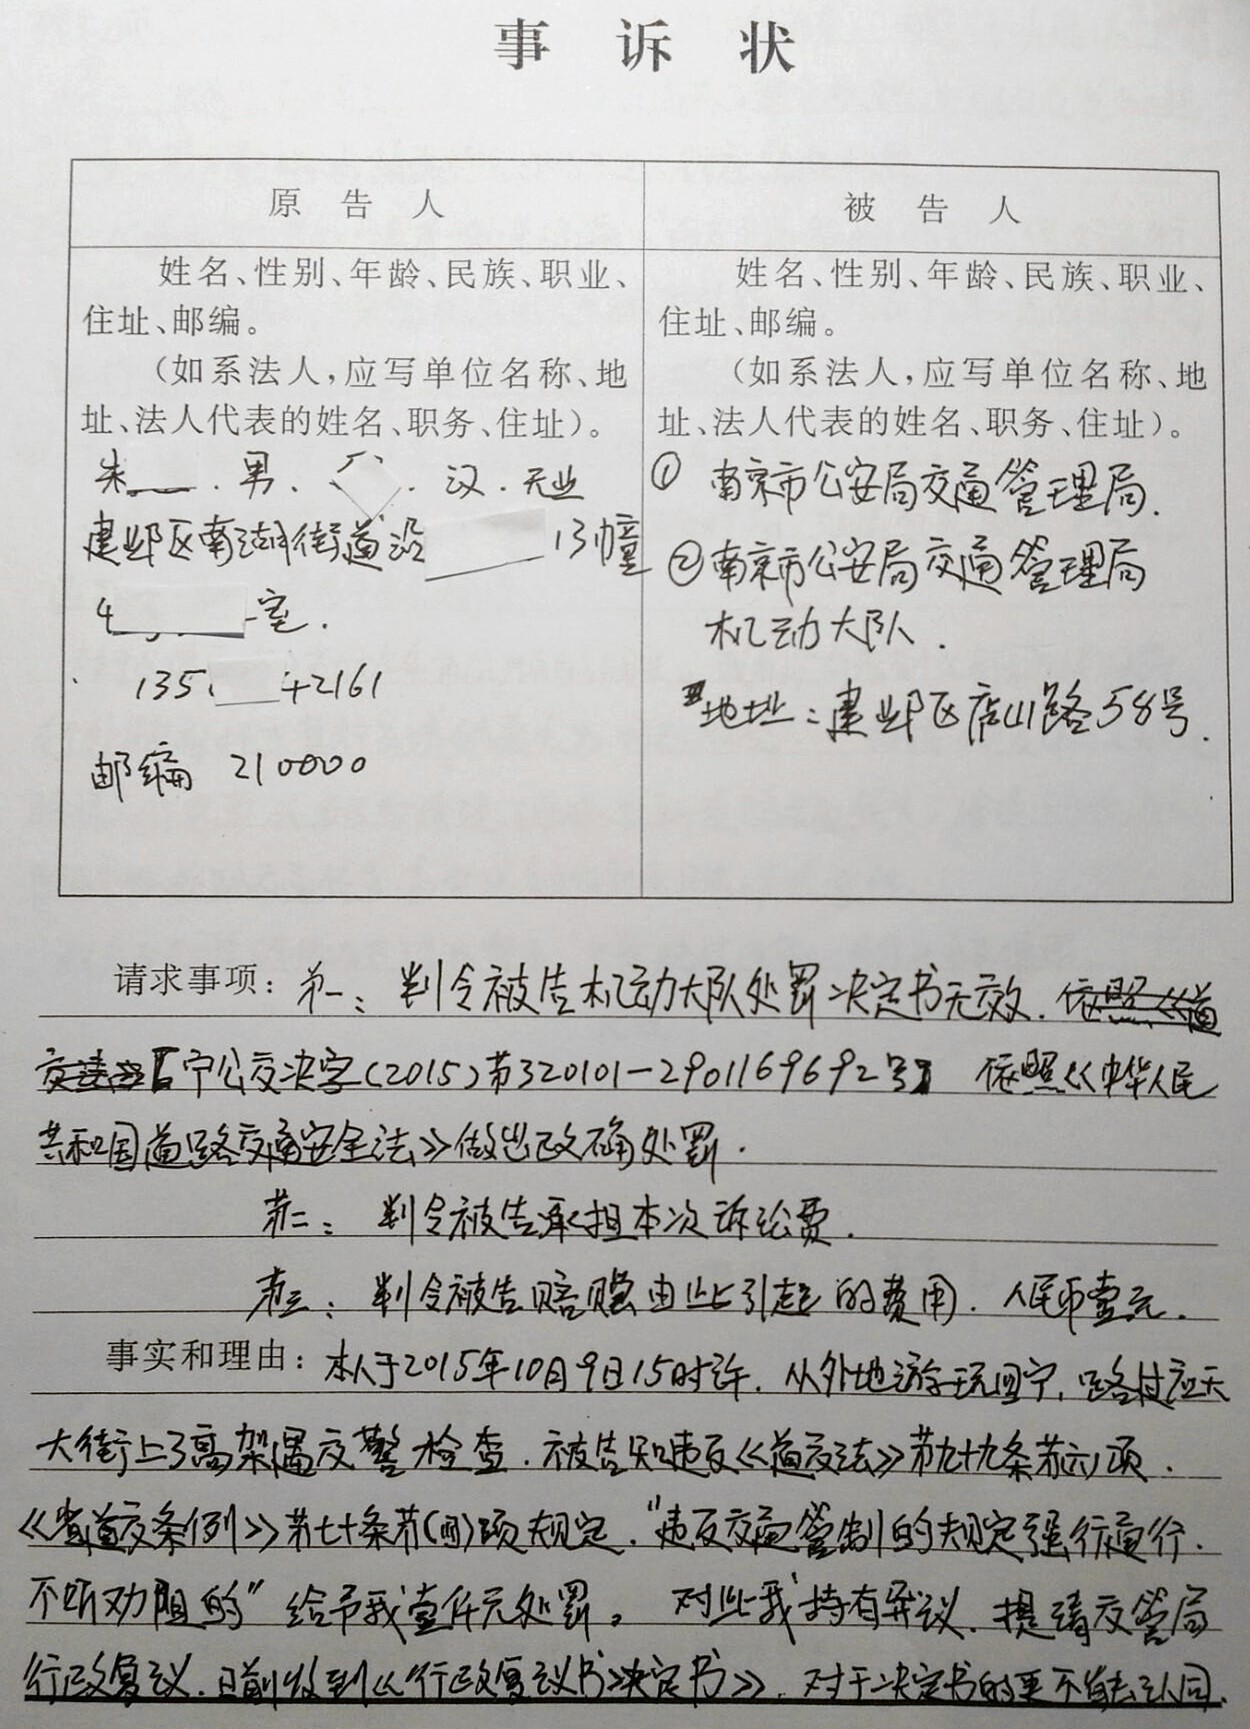 事 诉 状
原 告 人
被 告 人
姓名、性别、年龄、民族、职业、
住址、邮编。
(如系法人,应写单位名称、地
址、法人代表的姓名、职务、住址)。
朱 . 男、 . 汉 . 无业
建邺区南湖街道沿 13幢
4 室.
135 42161
邮编 210000
姓名、性别、年龄、民族、职业、
住址、邮编。
(如系法人,应写单位名称、地
址、法人代表的姓名、职务、住址)。
① 南京市公安局交通管理局.
②南京市公安局交通管理局
机动大队.
地址:建邺区庐山路58号.
请求事项: 第一: 判令被告机动大队处罚决定书无效. 依照《道
宁公交决字(2015)第320101-2901169692号 依照《中华人民
共和国道路交通安全法》做出正确处罚.
第二: 判令被告承担本次诉讼费.
第三: 判令被告赔赏由此引起的费用. 人民币壹元.
事实和理由: 本人于2015年10月9日15时许. 从外地游玩回宁, 路过应天
大街上了高架遇交警检查. 被告知违反《道交法》第九十九条第六项.
《省道交条例》第七十条第(四)项规定. "违反交通管制的规定强行通行.
不听劝阻的" 给予我壹仟元处罚。 对此我持有异议. 提请交管局
行政复议. 日前收到《行政复议书决定书》. 对于决定书的更不能去认同.